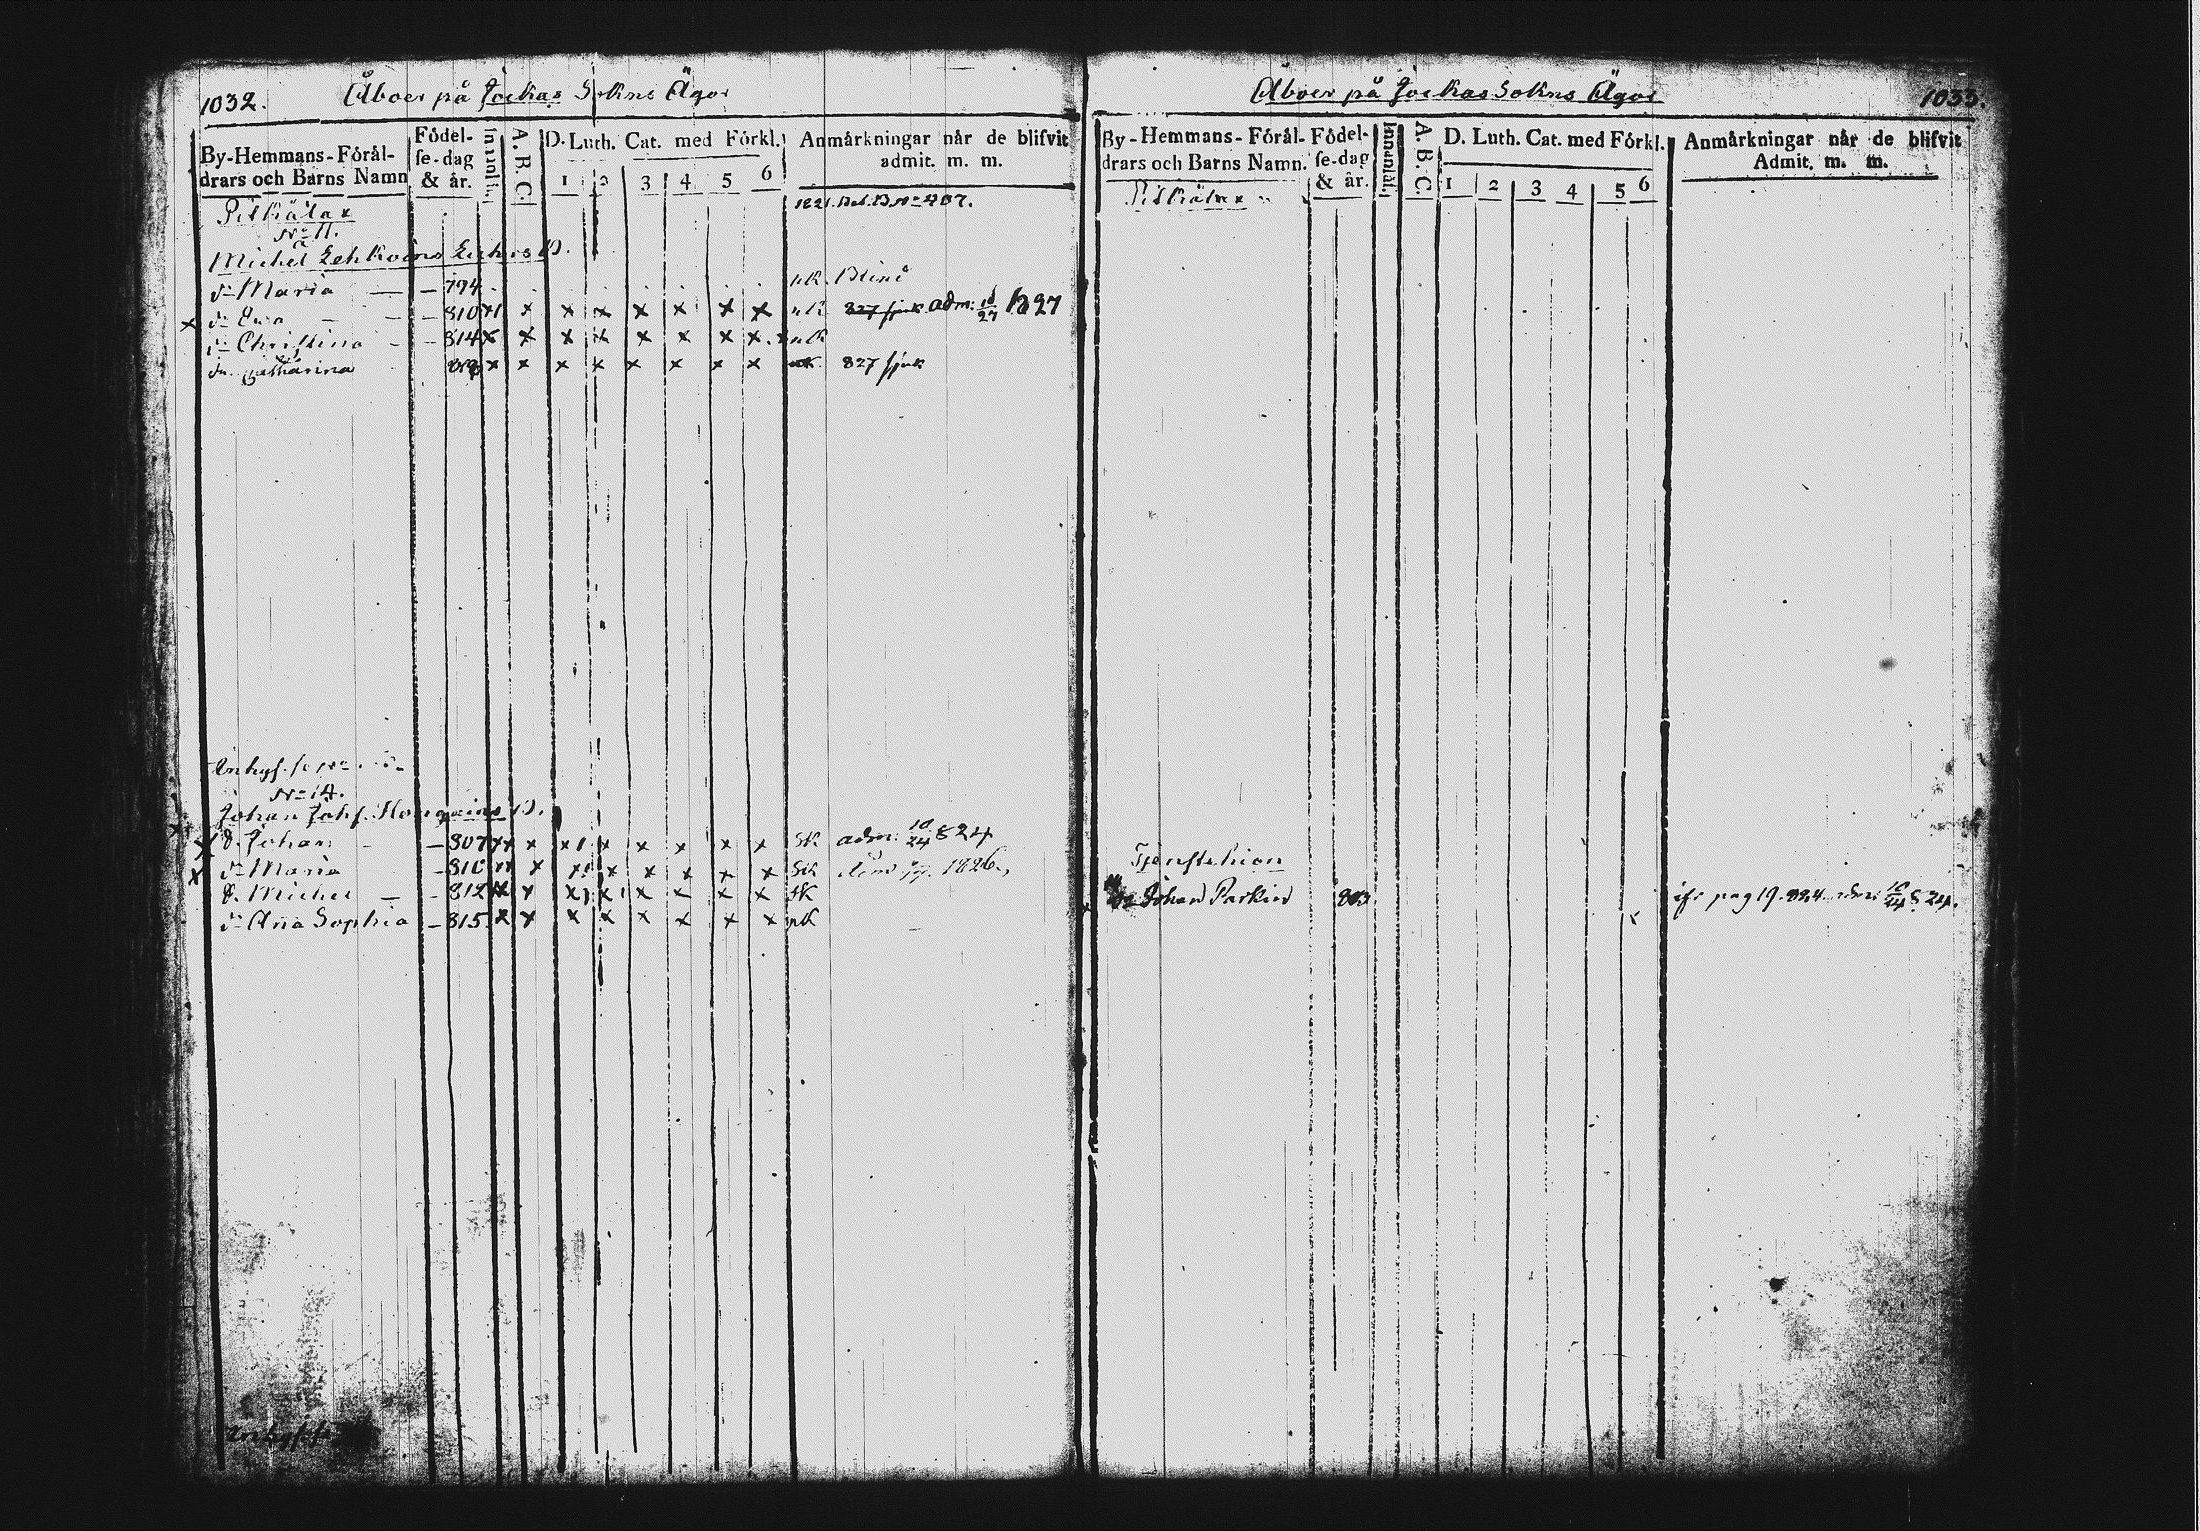 1032. Åboer på Jockas Sokns Ägor
By-Hemmans-Förål-drars och Barns Namn Födel-se-dag & år. Innanläs. A.B.C. D. Luth. Cat. med Förkl. 1 2 3 4 5 6 Anmärkningar når de blifvit admit. m. m.
Pitkälax
No 11.
Michel Lehkoins D.
dr Maria — — 794 nk. Blind
x dr Ewa — — 810 x x x x x x x x nk 827 sjuk adm: 1827
dr Christina — — 814 x x x x x x x x nk
dr Catharina x x x x x x x x nk 827 sjuk
Inhys.
No 14.
Johan Johs.
x S. Johan — — 807 x x x x x x x x Sk adm: 10/24 824
x dr Maria — 810 x x x x x x x Sk 1826.
S. Michel — — 812 x x x x x x x x
dr Ana Sophia — 815. x x x x x x x x nk
Inhyses
Åboer på Jockas Sokns Ägor 1033.
By-Hemmans-Förål-drars och Barns Namn. Födel-se-dag & år. Innanläs. A.B.C. D. Luth. Cat. med Förkl. 1 2 3 4 5 6 Anmärkningar når de blifvit Admit. m. m.
Pitkälax
Tjenstehion
Johan Parkin 803 x pag 19. 824. 10/24 824.